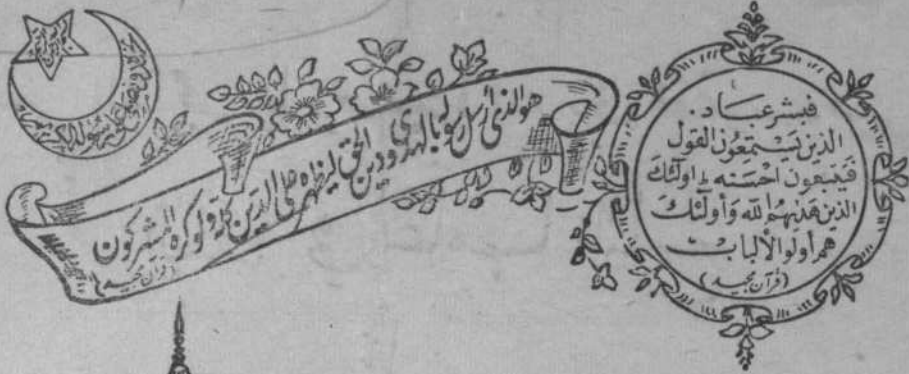 فبشر عباد.
الذين يستمعون القول
فيتبعون احسنه ط اولئك
الذين هديهم الله وأولئك
هم أولو الألباب
(قرآن مجید)
هو الذی أرسل رسوله بالهدی و دین الحق لیظهره علی الدین کله ولو کره المشرکون